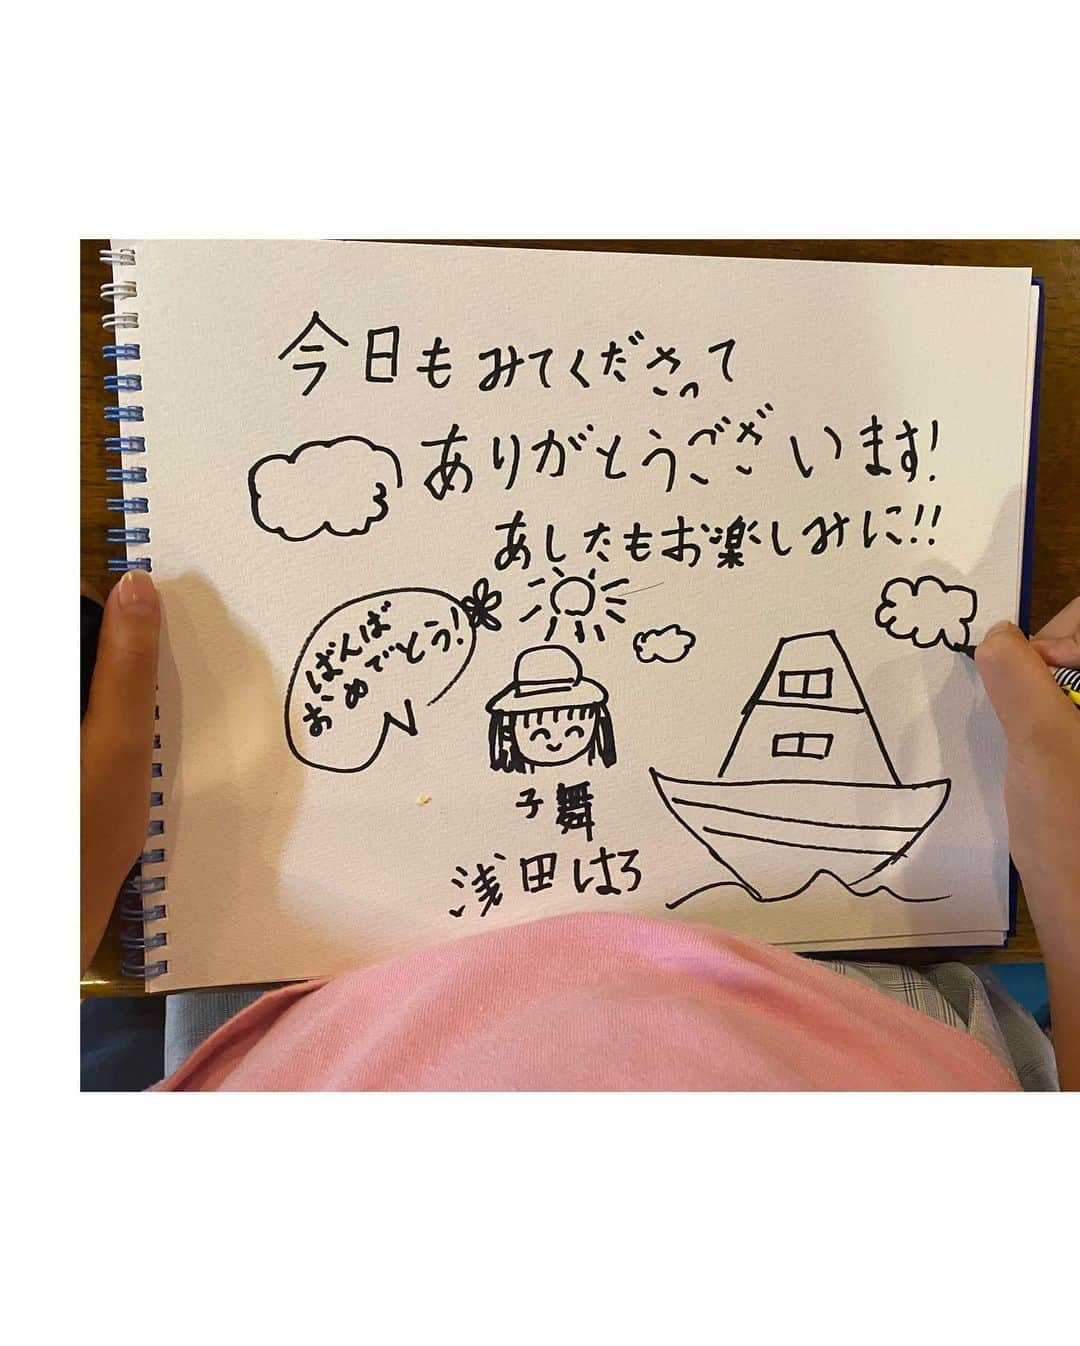 今日もみてくださって
ありがとうございます!
あしたもお楽しみに!!
ばんば
おめでとう!
子舞
浅田はろ